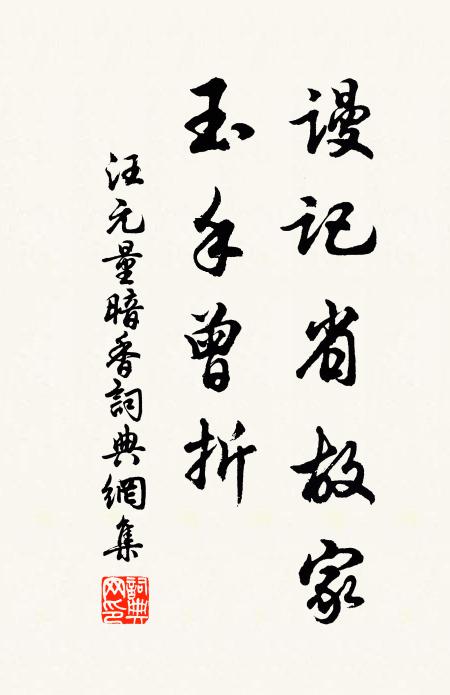 謾記省故家
玉手曾折
汪元量暗香詞典網集
詞典網印